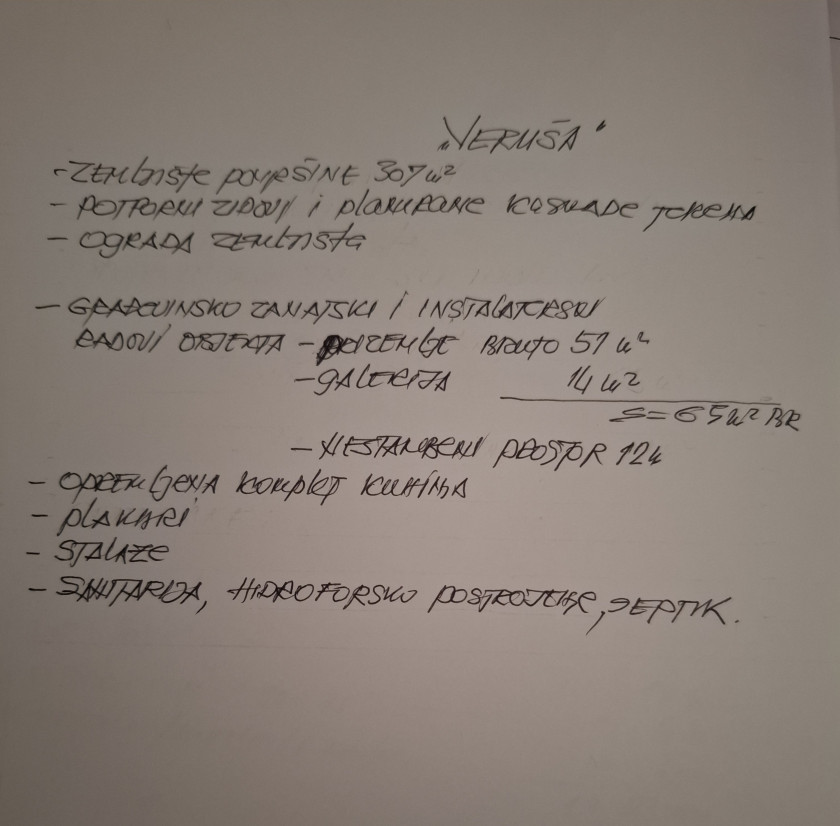 „VERUŠA"
- ZEMLJIŠTE POVRŠINE 307 m²
- POTPORNI ZIDOVI i PLANIRANE KASKADE TERENA
- OGRADA ZEMLJIŠTA
- GRAĐEVINSKO ZANATSKI I INSTALATERSKI
RADOVI OBJEKTA - PRIZEMLJE BRUTO 51 m²
- GALERIJA 14 m²
S = 65 m² BR
- NESTAMBENI PROSTOR 12
- OPREMLJENA KOMPLET KUHINJA
- PLAKARI
- STALAŽE
- SANITARIJA, HIDROFORSKO POSTROJENJE, SEPTIK.